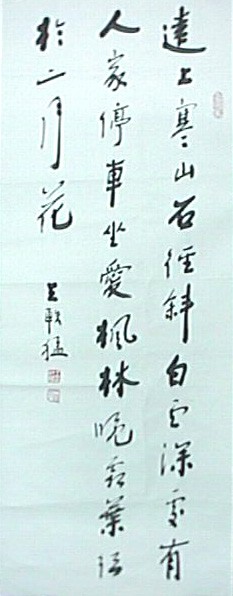 遠上寒山石徑斜白云深處有
人家停車坐愛楓林晚霜葉红
於二月花
猛